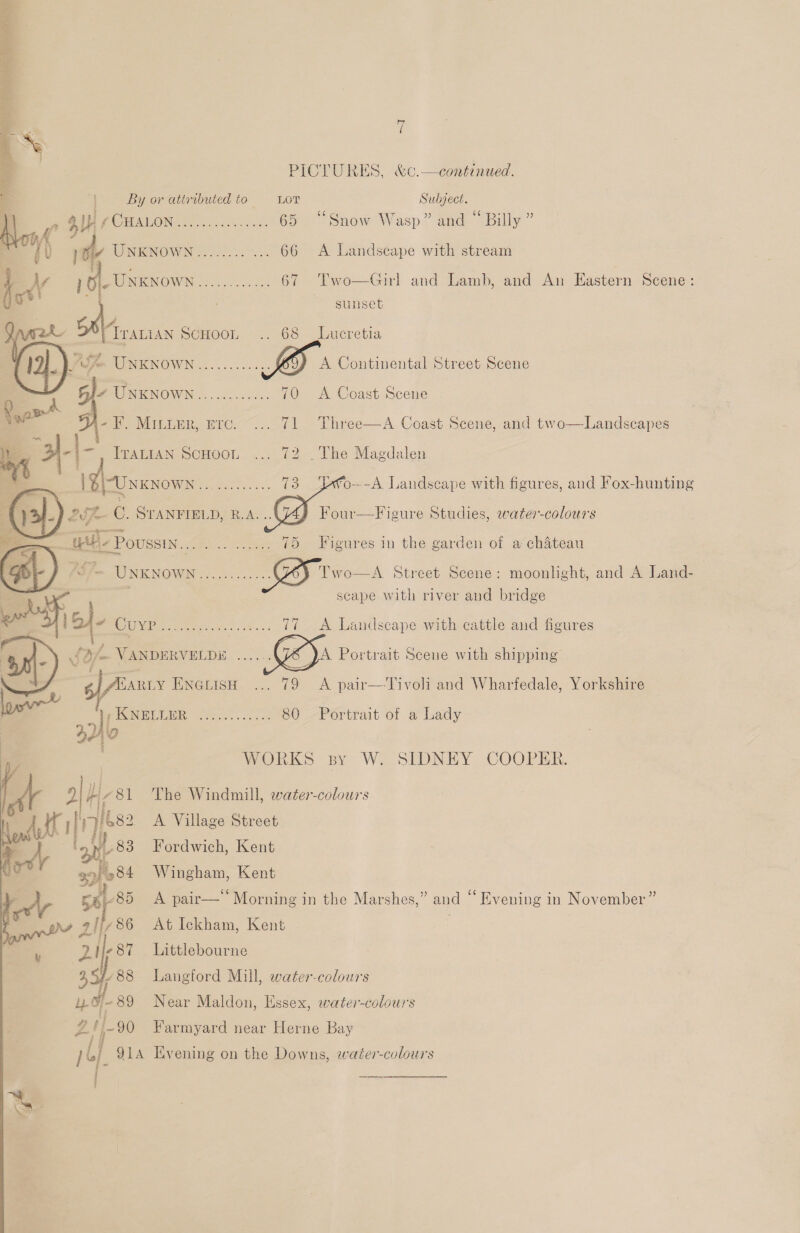 7
PICTURES, &c.—continued.
By or attributed to LOT Subject.
CHALON ............... 65 “Snow Wasp” and “Billy”
UNKNOWN ............ 66 A Landscape with stream
UNKNOWN ............ 67 Two—Girl and Lamb, and An Eastern Scene:
sunset
ITALIAN SCHOOL .. 68 Lucretia
UNKNOWN ............ 69 A Continental Street Scene
UNKNOWN ............ 70 A Coast Scene
F. MILLER, ETC. ... 71 Three—A Coast Scene, and two—Landscapes
ITALIAN SCHOOL ... 72 The Magdalen
UNKNOWN ............ 73 Two—A Landscape with figures, and Fox-hunting
C. STANFIELD, R.A. .. 74 Four—Figure Studies, water-colours
POUSSIN ............... 75 Figures in the garden of a château
UNKNOWN ............ 76 Two—A Street Scene: moonlight, and A Land-
scape with river and bridge
CUYP .................. 77 A Landscape with cattle and figures
VANDERVELDE ...... 78 A Portrait Scene with shipping
EARLY ENGLISH ... 79 A pair—Tivoli and Wharfedale, Yorkshire
KNELLER ............ 80 Portrait of a Lady
WORKS BY W. SIDNEY COOPER.
81 The Windmill, water-colours
82 A Village Street
83 Fordwich, Kent
84 Wingham, Kent
85 A pair—“Morning in the Marshes,” and “Evening in November”
86 At Ickham, Kent
87 Littlebourne
88 Langford Mill, water-colours
89 Near Maldon, Essex, water-colours
90 Farmyard near Herne Bay
91A Evening on the Downs, water-colours